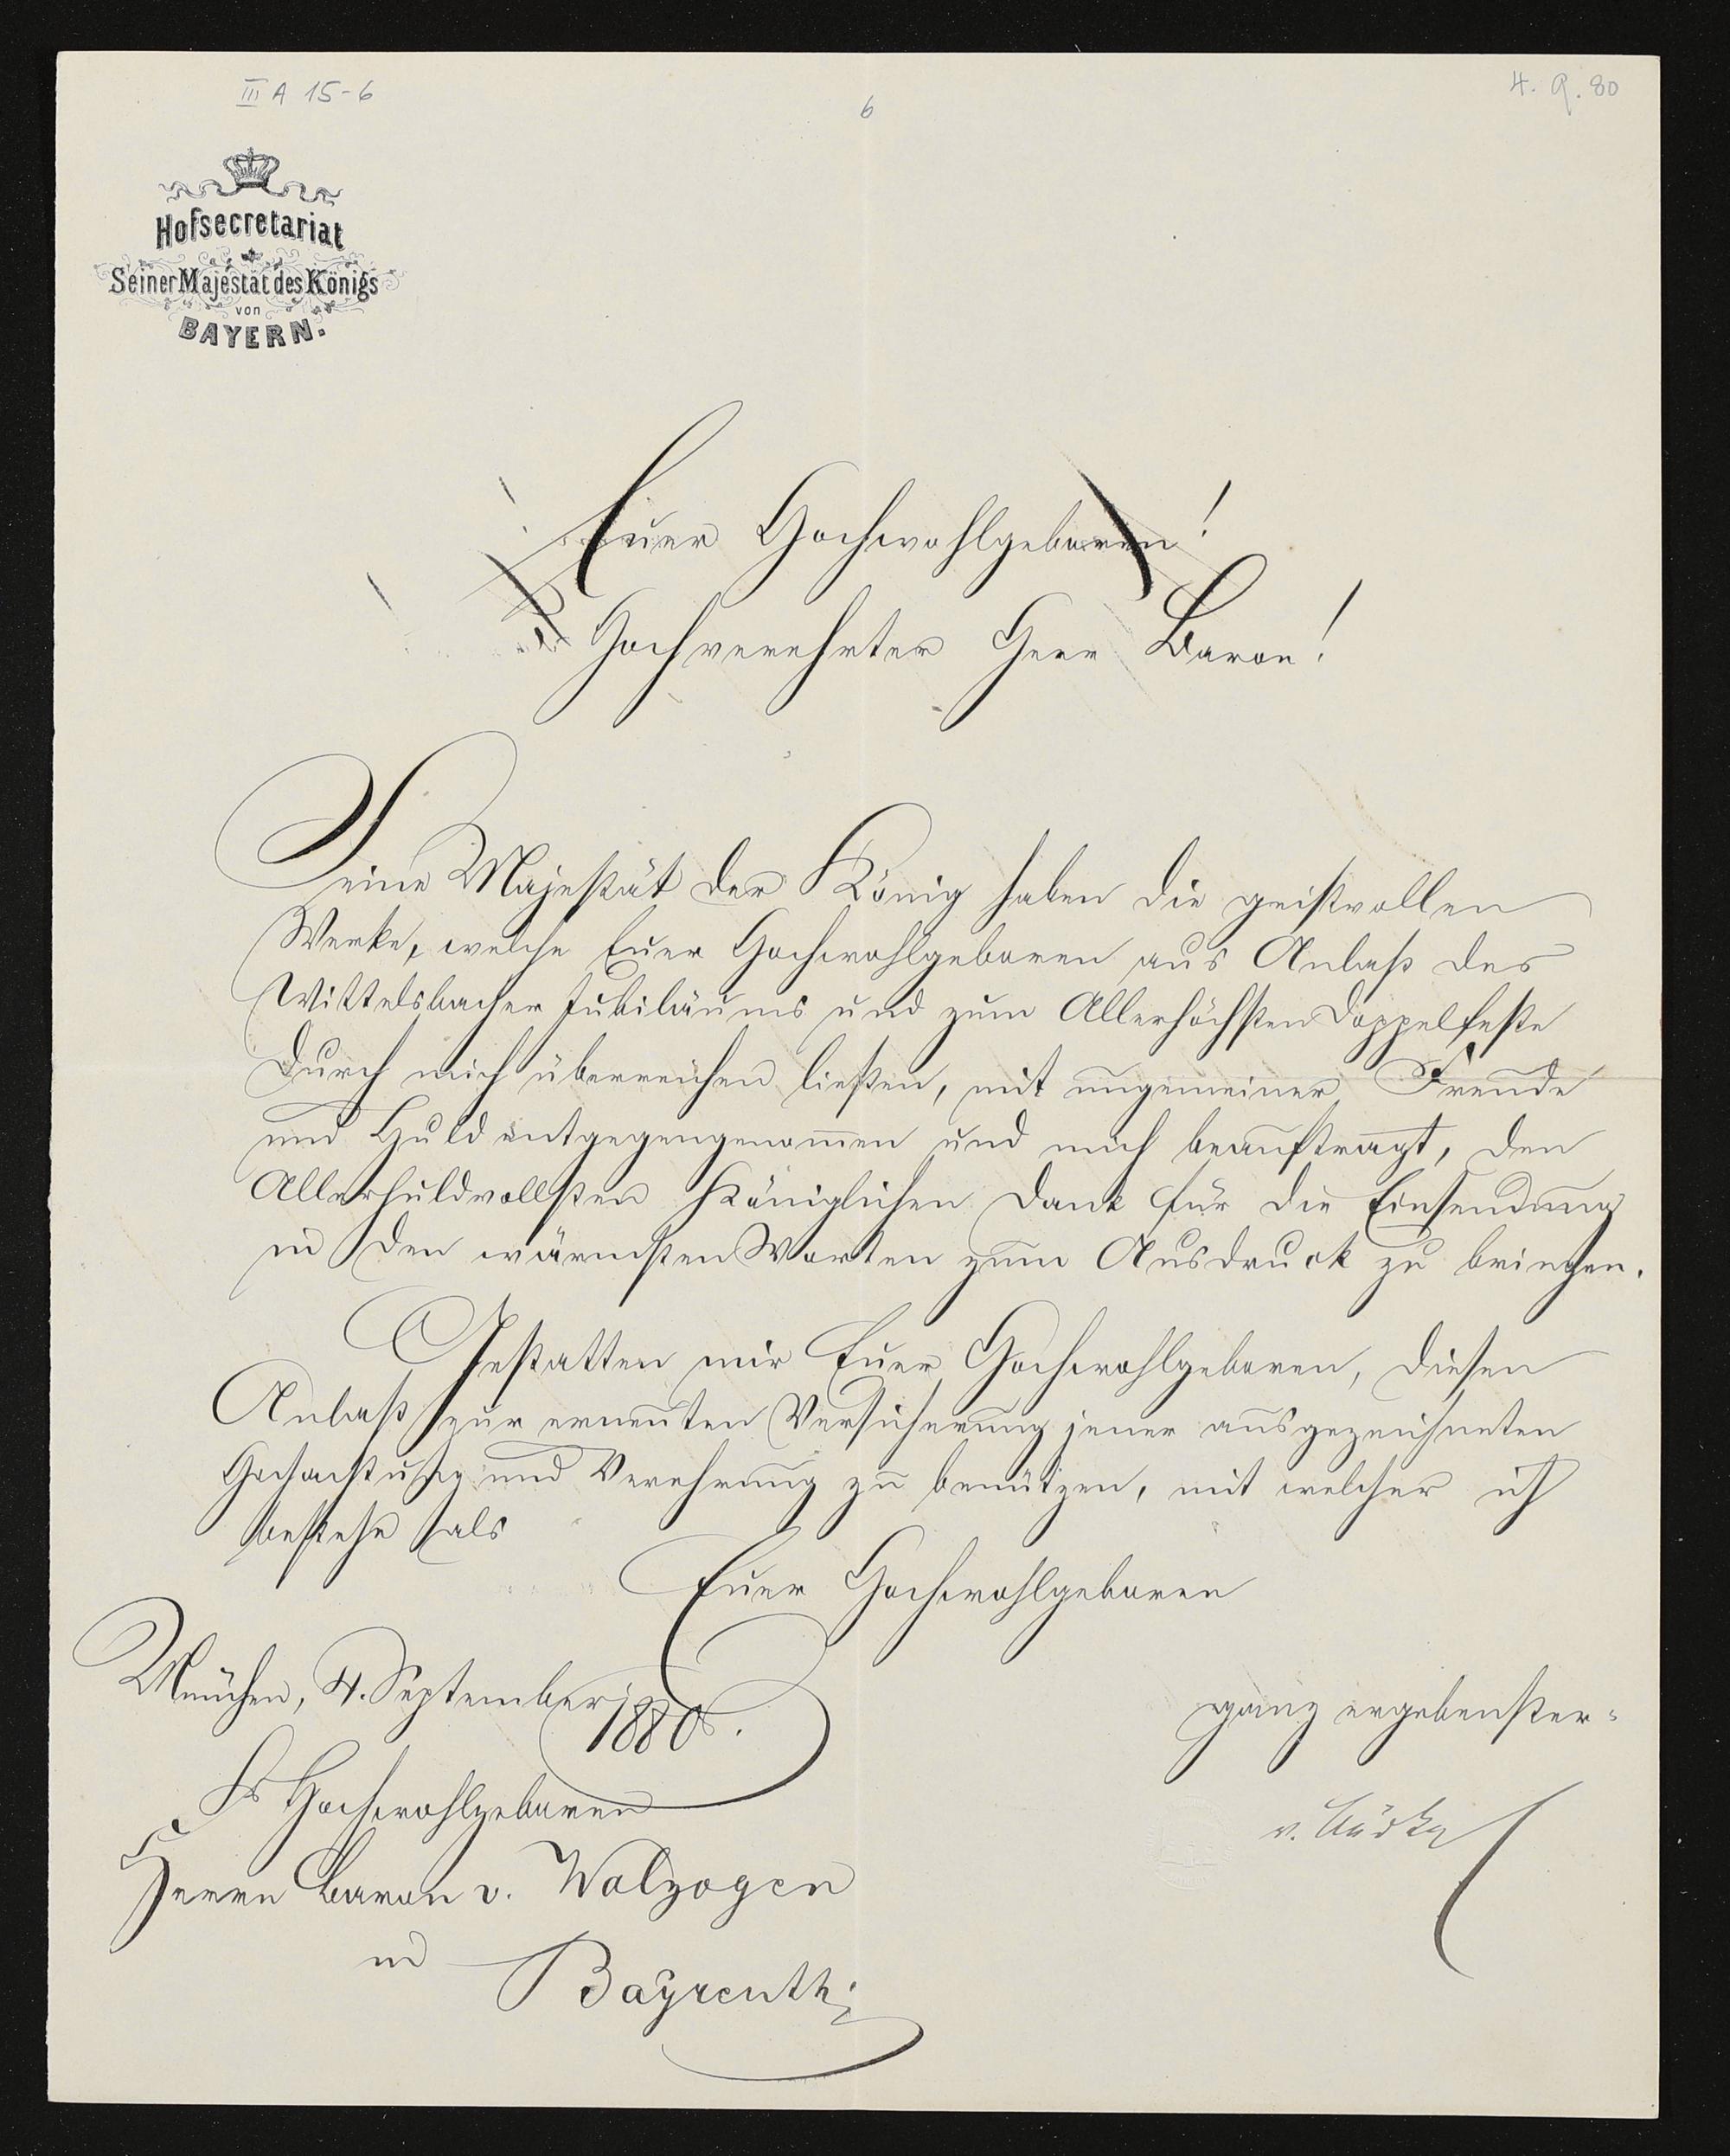 III A 15-6
6
4. 9. 80
Hofsecretariat
Seiner Majestät des Königs
von
BAYERN.
Euer Hochwohlgeboren!
Hochverehrter Herr Baron!
Seine Majestät der König haben die geistvollen
Werke, welche Euer Hochwohlgeboren aus Anlaß des
Wittelsbacher Jubiläums und zum Allerhöchsten Doppelfeste
durch mich überreichen ließen, mit ungemeiner Freude
und Huld entgegengenom̅en und mich beauftragt, den
Allerhuldvollsten Königlichen Dank für die Einsendung
in den wärmsten Worten zum Ausdruck zu bringen.
Gestatten mir Euer Hochwohlgeboren, diesen
Anlaß zur erneuten Versicherung jener ausgezeichneten
Hochachtung und Verehrung zu benützen, mit welcher ich
bestehe als
Euer Hochwohlgeboren
München, 4. September
1880.
ganz ergebenster
v. Bürkel
Sr Hochwohlgeboren
Herrn Baron v. Wolzogen
in
Bayreuth